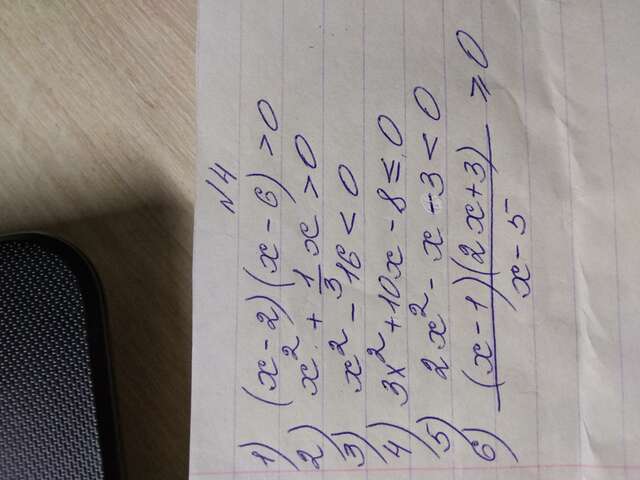 N4
1) (x-2)(x-6) > 0
2) x² + 1/3 x > 0
3) x² - 16 < 0
4) 3x² + 10x - 8 ≤ 0
5) 2x² - x + 3 < 0
6) (x-1)(2x+3) / x-5 ≥ 0